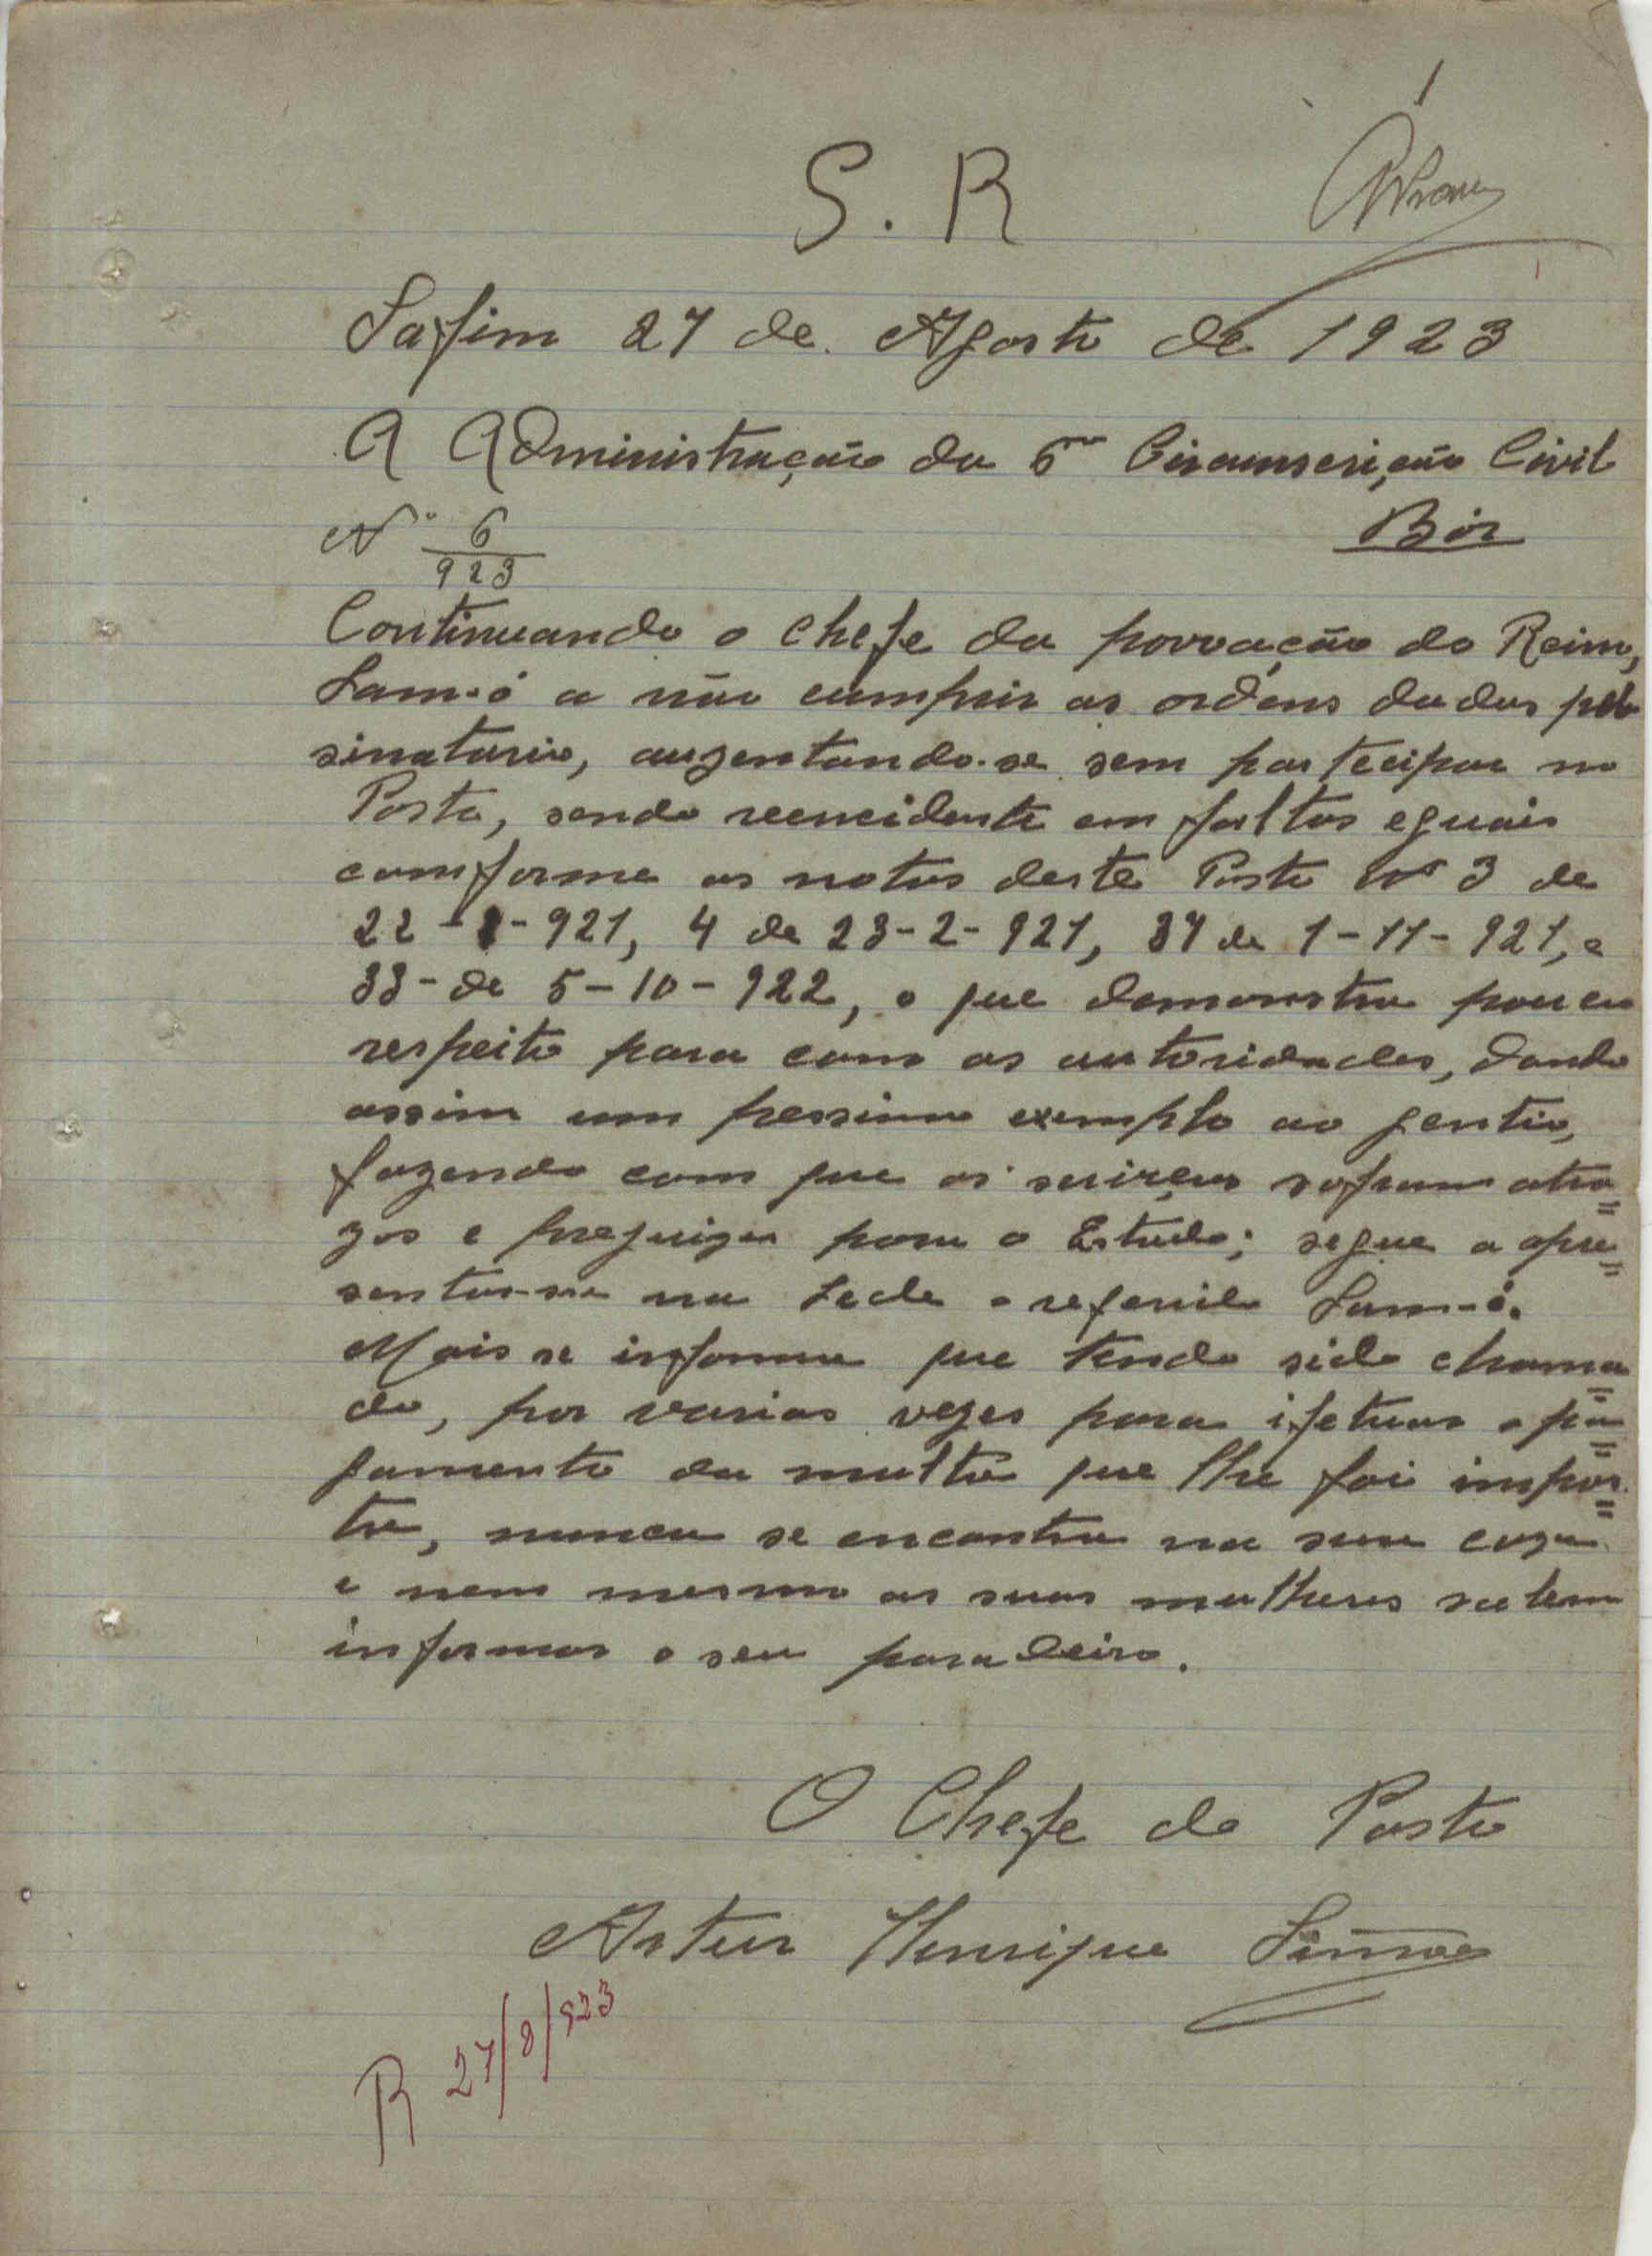 1
S. R
Safim 27 de Agosto de 1923
A Administração da 6ª Circunscrição Civil
Nº 6/923 Bór
Continuando o chefe da povoação do Reino,
Sam-ó a não cumprir as ordens dadas pelo
sinatario, auzentando-se sem partecipar no
Posto, sendo reencidente em faltas eguais
comforme as notas deste Posto Nº 3 de
22-1-921, 4 de 23-2-921, 37 de 1-11-921, e
33- de 5-10-922, o que demonstra pouco
respeito para com as autoridades, dando
assim um pessimo exemplo ao gentio,
fazendo com que os serviços sofram atra=
zos e prejuizos para o Estado; segue a apre=
sentar-se na Sede o referido Sam-ó.
Mais se informa que tendo sido chama=
do, por varias vezes para ifetuar o pa=
gamento da multa que lhe foi impos=
ta, nunca se encontra na sua caza
e nem mesmo as suas mulheres sabem
informar o seu paradeiro.
O Chefe do Posto
Artur Henrique Simões
R 27/8/923